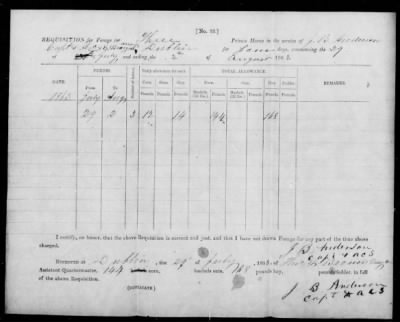 [No. 33.]
REQUISITION for Forage for Three Private Horse in the service of J. B. Anderson
Dublin for days, commencing the 29
of July and ending the 2 of August 1863.
DATE. PERIOD. Number of Horses. Daily allowance for each. TOTAL ALLOWANCE.
From To Corn. Hay. Fodder. Corn. Oats. Hay. Fodder.
1863 July Aug Pounds. Pounds. Pounds. Pounds. Pounds. Pounds.
29 2 3 12 14 168
I certify, on honor, that the above Requisition is correct and just, and that I have not drawn Forage for any part of the time above
charged.
J B Anderson
Capt & ACS
RECEIVED at Dublin the 29 of July 1863, of
Assistant Quartermaster, 144 corn, bushels oats, 168 pounds hay, pounds fodder, in full
of the above Requisition.
(DUPLICATE)
J B Anderson
Capt & ACS